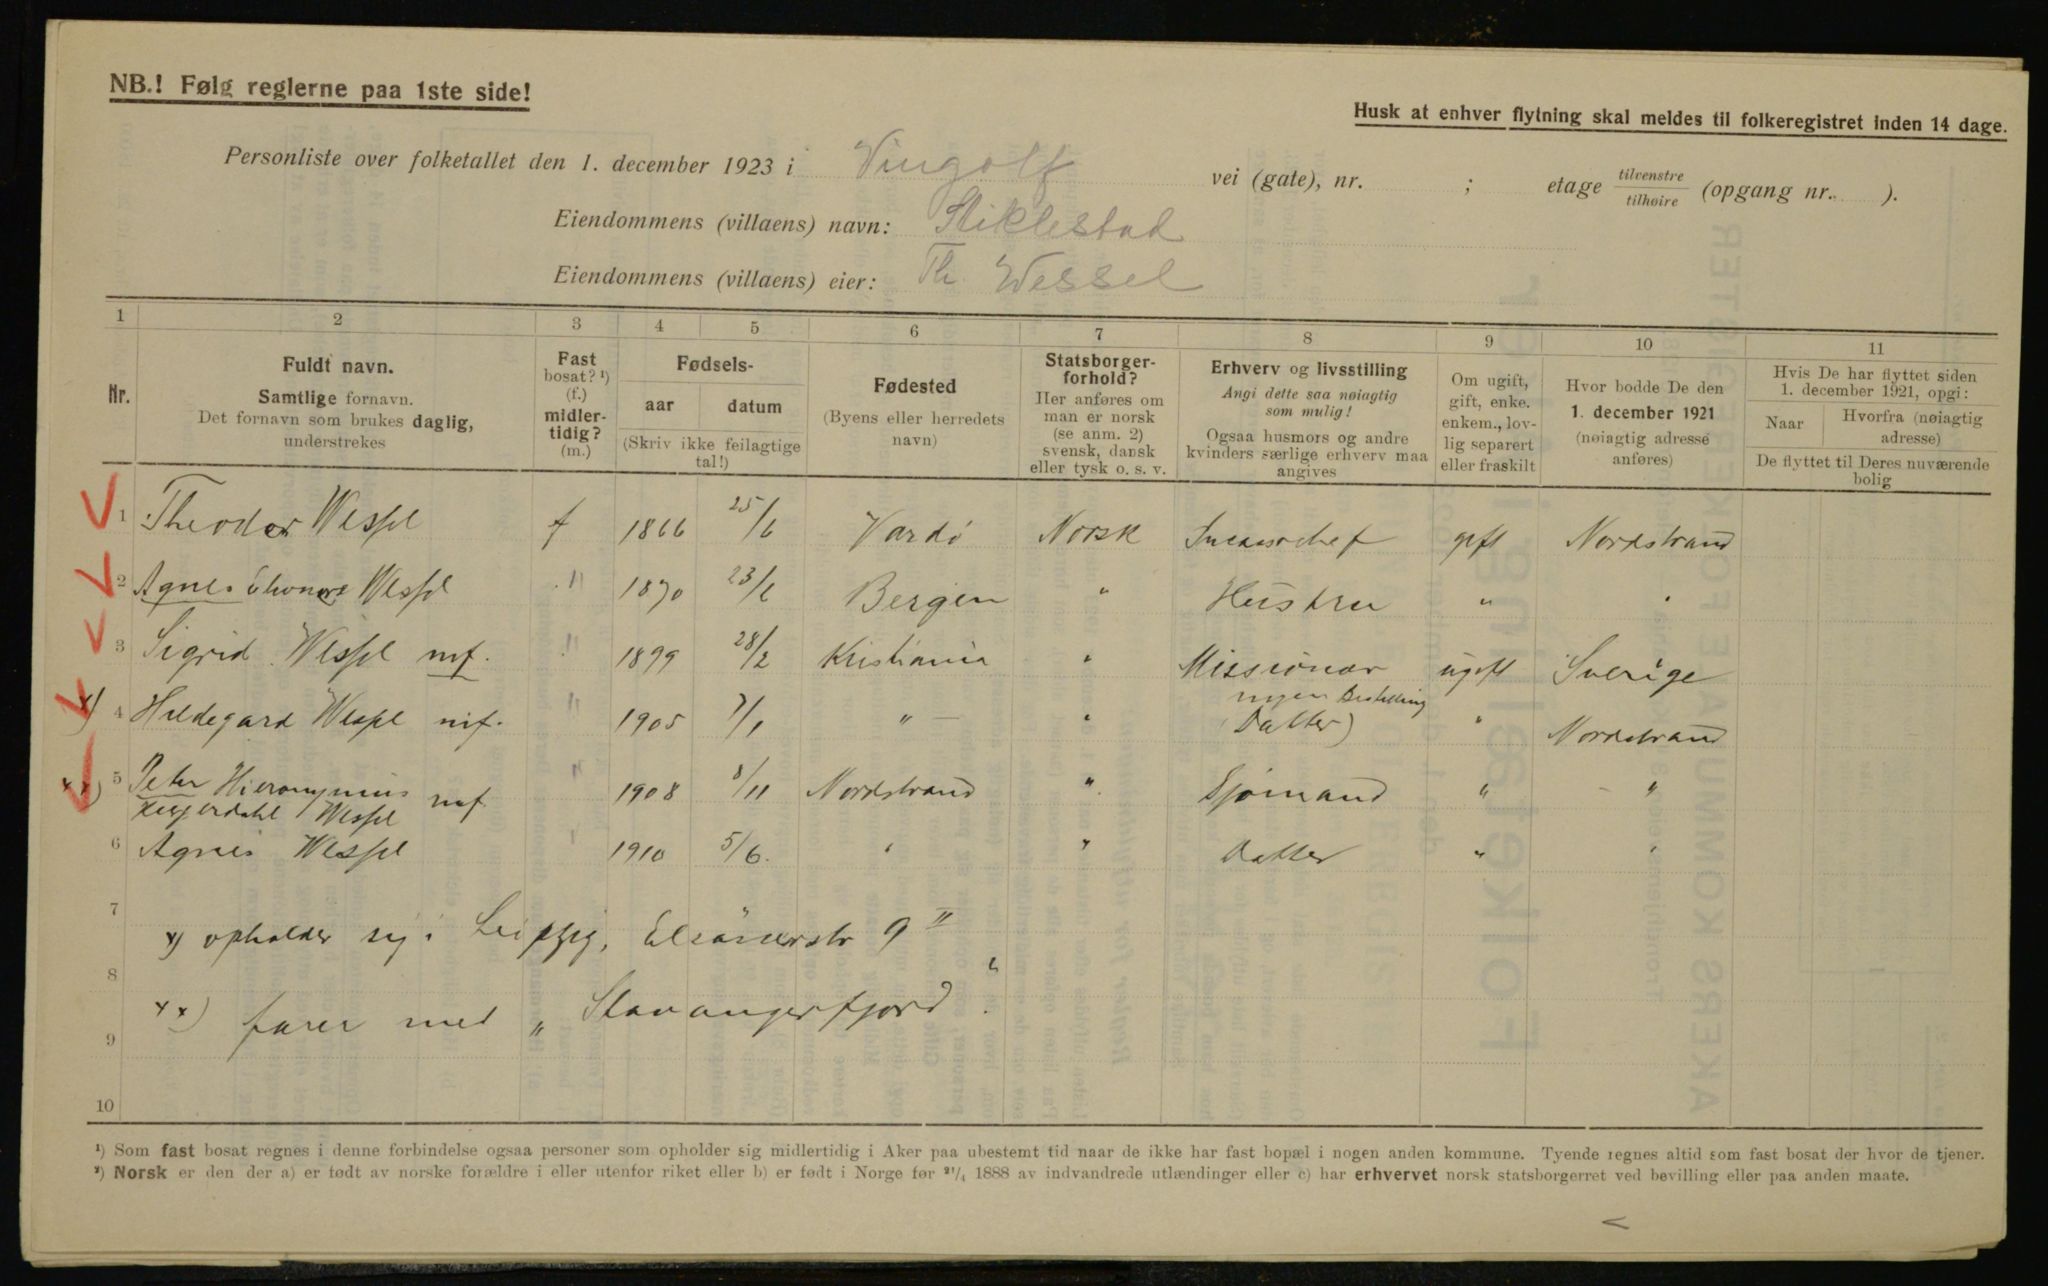 NB.! Følg reglerne paa 1ste side!
Husk at enhver flytning skal meldes til folkeregistret inden 14 dage.
Personliste over folketallet den 1. december 1923 i Vingolf vei (gate), nr. ; etage tilvenstre/tilhøire (opgang nr. ).
Eiendommens (villaens) navn: Stiklestad
Eiendommens (villaens) eier: Th. Wessel
1 2 3 4 5 6 7 8 9 10 11
Nr.
Fuldt navn.
Samtlige fornavn.
Det fornavn som brukes daglig,
understrekes
Fast
bosat? ¹)
(f.)
midler-
tidig?
(m.)
Fødsels-
aar
datum
(Skriv ikke feilagtige
tal!)
Fødested
(Byens eller herredets
navn)
Statsborger-
forhold?
Her anføres om
man er norsk
(se anm. 2)
svensk, dansk
eller tysk o. s. v.
Erhverv og livsstilling
Angi dette saa nøiagtig
som mulig!
Ogsaa husmors og andre
kvinders særlige erhverv maa
angives
Om ugift,
gift, enke.
enkem., lov-
lig separert
eller fraskilt
Hvor bodde De den
1. december 1921
(nøiagtig adresse
anføres)
Hvis De har flyttet siden
1. december 1921, opgi:
Naar
Hvorfra (nøiagtig
adresse)
De flyttet til Deres nuværende
bolig
1 Theodor Wessel f 1866 25/6 Vardø Norsk gift Nordstrand
2 Agnes Wessel " 1870 23/2 Bergen " Hustru " "
3 Sigrid Wessel " 1899 28/2 Kristiania " Missionær ugift Sverige
nyen Bestilling
x) 4 Hildegard Wessel " 1905 7/1 " — " (Datter) " Nordstrand
xx) 5 Peter Hieronymus " 1908 8/11 Nordstrand " Sjømand " — "
Heyerdahl Wessel
6 Agnes Wessel " 1910 5/6. " " Datter " "
7
x) opholder sig i Leipzig, 9 II
8
xx) farer med „Stavangerfjord".
9
10
¹) Som fast bosat regnes i denne forbindelse ogsaa personer som opholder sig midlertidig i Aker paa ubestemt tid naar de ikke har fast bopæl i nogen anden kommune. Tyende regnes altid som fast bosat der hvor de tjener.
²) Norsk er den der a) er født av norske forældre i eller utenfor riket eller b) er født i Norge før 21/4 1888 av indvandrede utlændinger eller c) har erhvervet norsk statsborgerret ved bevilling eller paa anden maate.